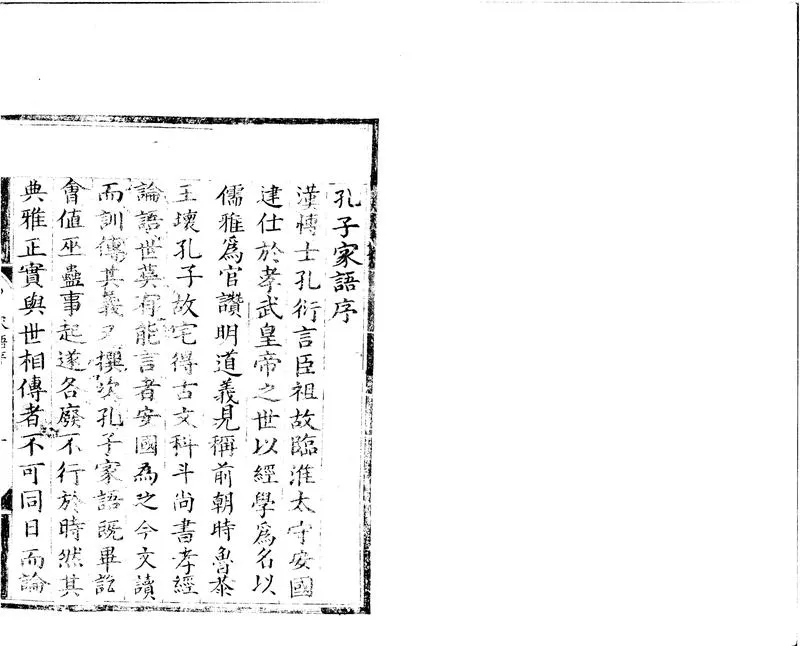 孔子家語序
漢博士孔衍言臣祖故臨淮太守安國
建仕於孝武皇帝之世以經學爲名以
儒雅爲官讚明道義見稱前朝時魯恭
王壞孔子故宅得古文科斗尚書孝經
論語世莫有能言者安國爲之今文讀
而訓傳其義又撰次孔子家語既畢訖
會值巫蠱事起遂各廢不行於時然其
典雅正實與世相傳者不可同日而論
家語序
一